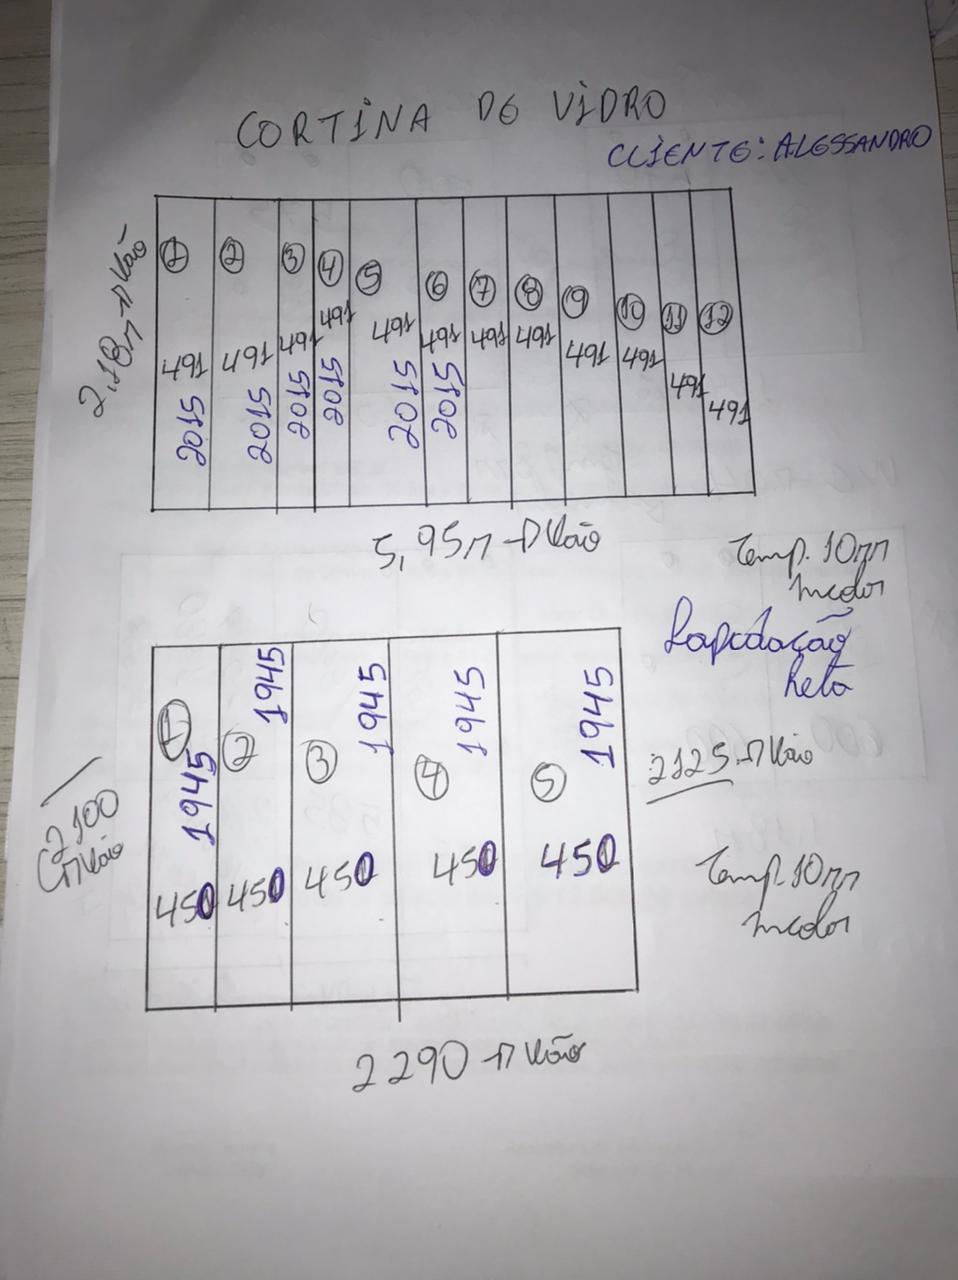 CORTINA DE VIDRO
CLIENTE: ALESSANDRO
2,18m → Vão
1 2 3 4 5 6 7 8 9 10 11 12
491 491 491 491 491 491 491 491 491 491 491 491
2015 2015 2015 2015 2015 2015
5,95m → Vão
Temp. 10mm
Incolor
Lapidação
Reta
1 2 3 4 5
1945 1945 1945 1945 1945
450 450 450 450 450
2100
→ Vão
2125 → Vão
Temp. 10mm
Incolor
2290 → Vão